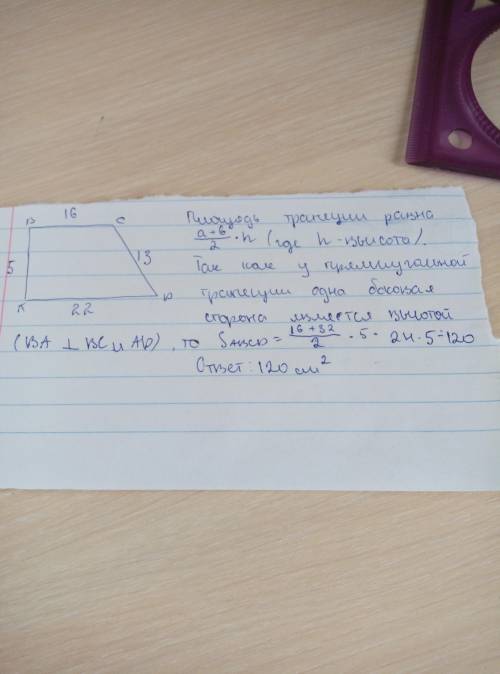 16
В С
5 13
А D
22
Площадь трапеции равна
a+b/2 · h (где h - высота).
Так как у прямоугольной
трапеции одна боковая
сторона является высотой
(BA ⊥ BC и AD), то SABCD = 16+32/2 · 5 = 24 · 5 = 120
Ответ: 120 см²